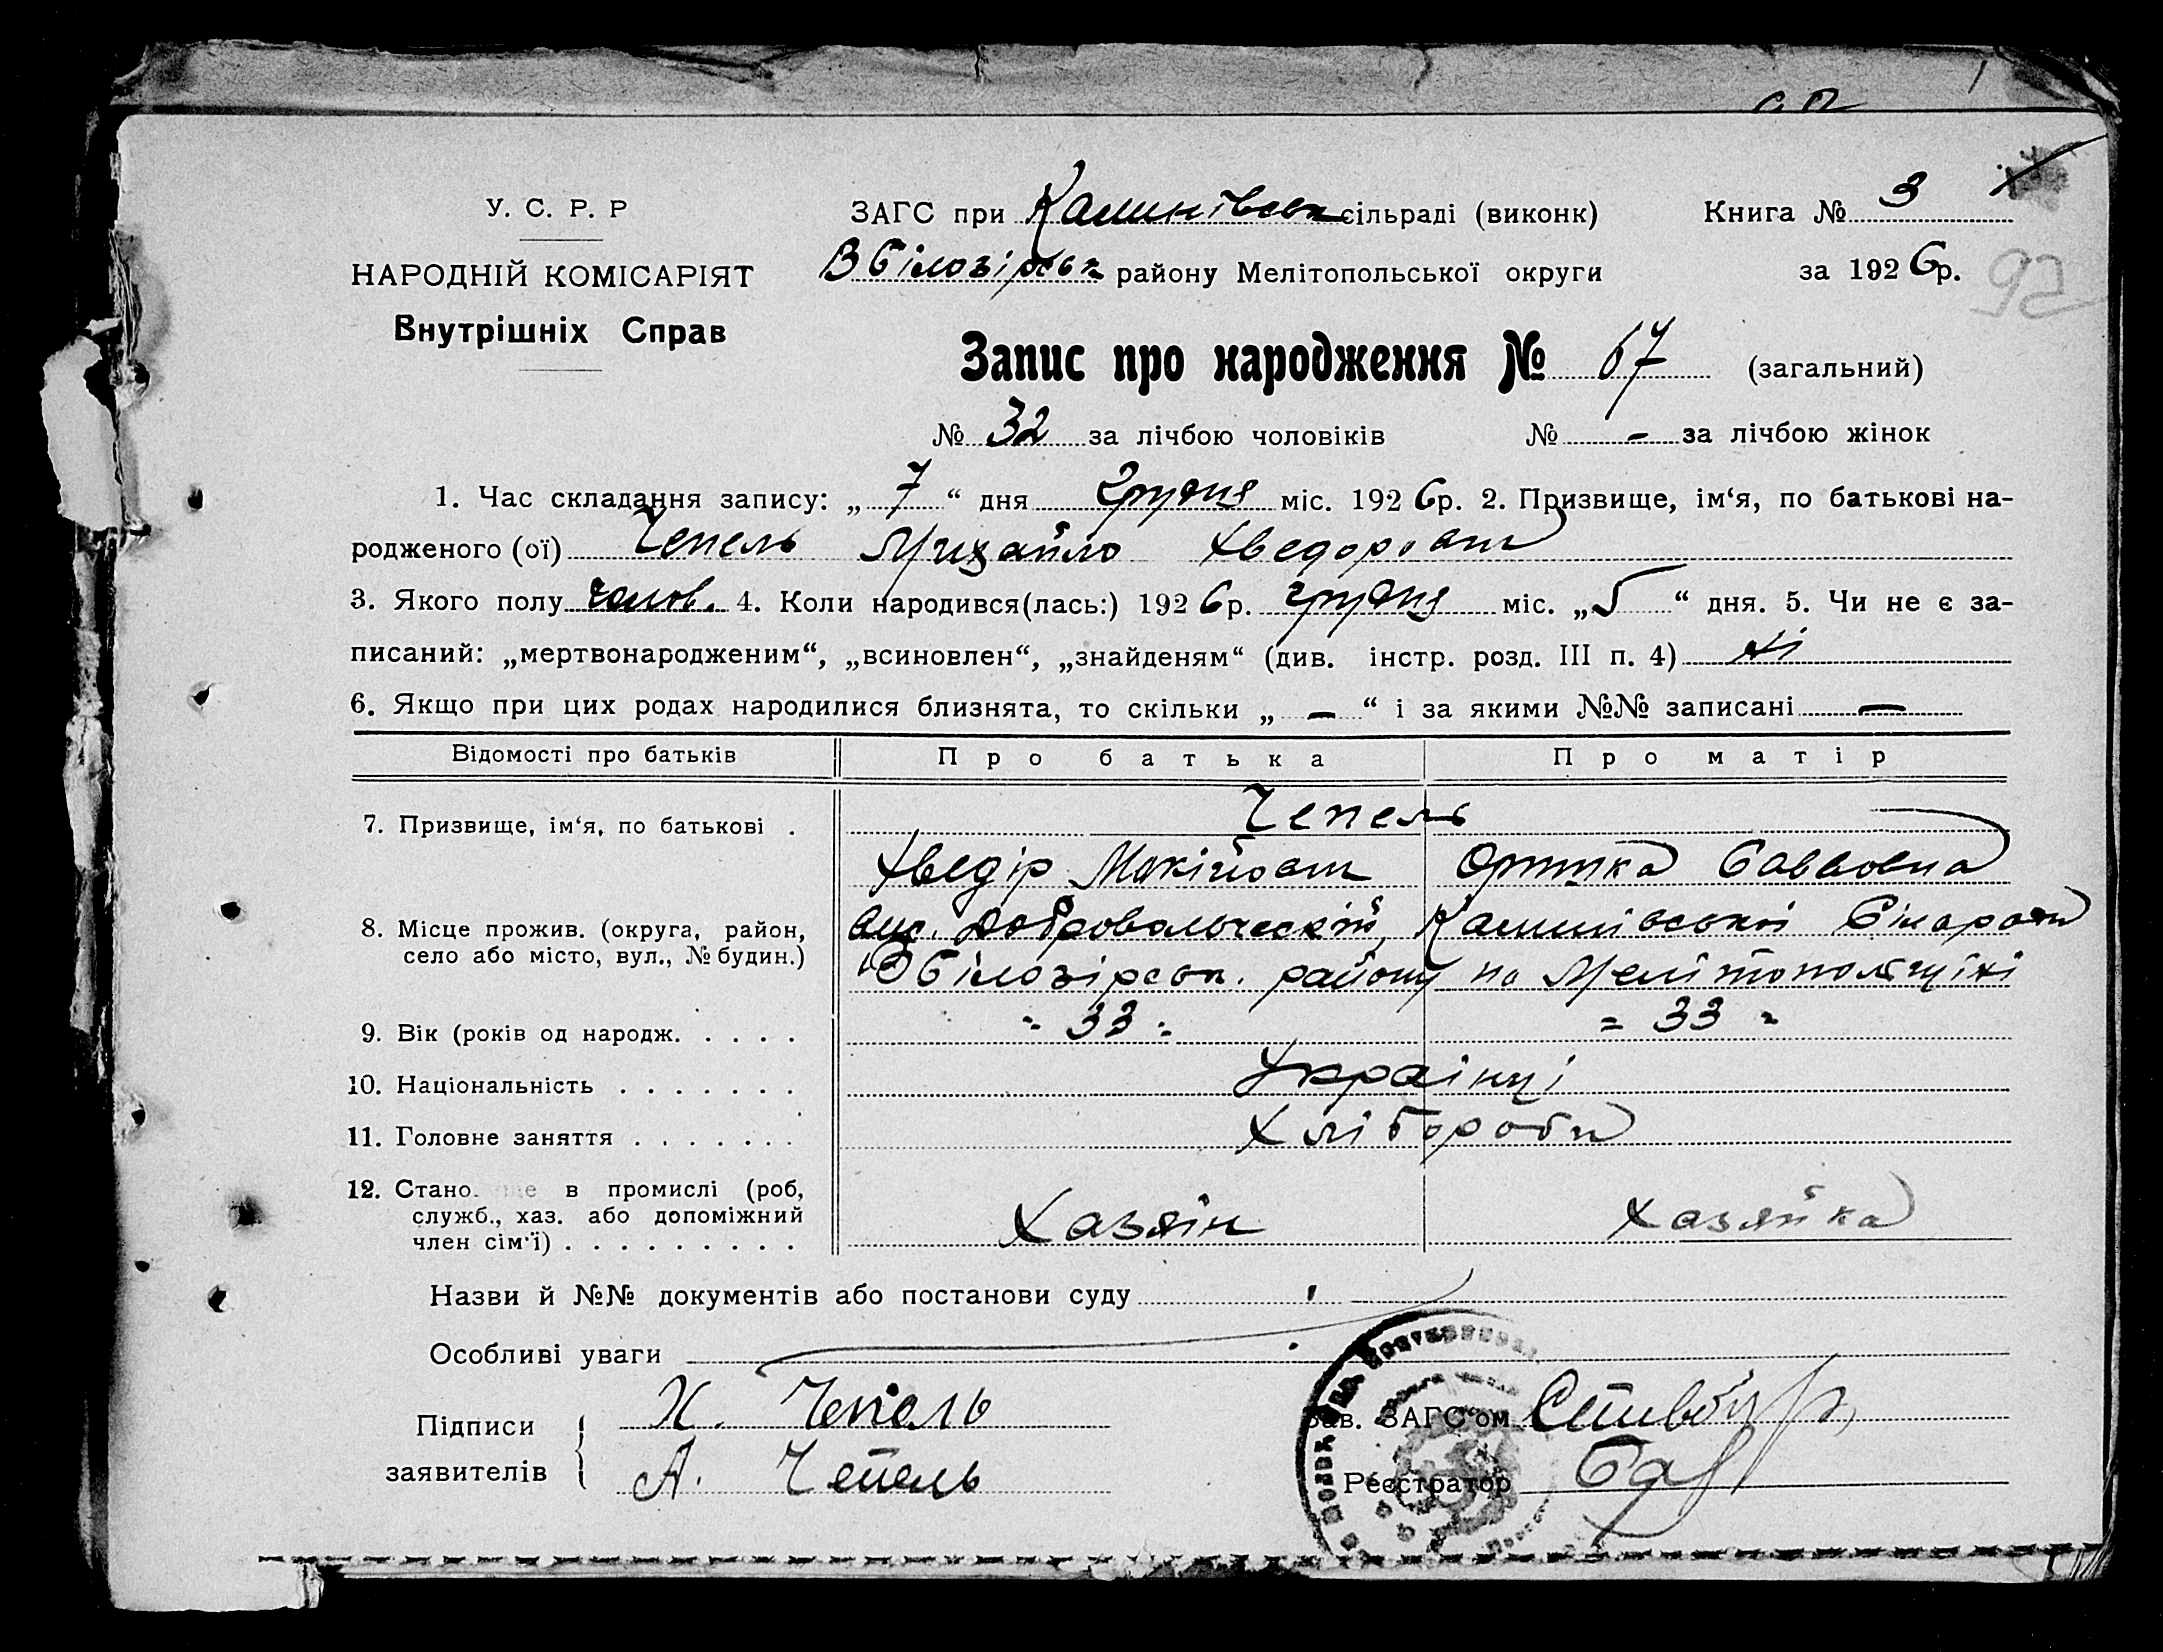 У. С. Р. Р
НАРОДНІЙ КОМІСАРІЯТ
Внутрішніх Справ
ЗАГС при Калинівськ сільраді (виконк)
В Білозірськ району Мелітопольської округи
Книга № 3
за 1926р.
92
Запис про народження № 67 (загальний)
№ 32 за лічбою чоловіків № - за лічбою жінок
1. Час складання запису: „7“ дня грудня міс. 1926р. 2. Призвище, ім‘я, по батькові на-
родженого (ої) Чепель Михайло Хведорович
3. Якого полу чолов. 4. Коли народився(лась:) 1926р. грудня міс. „5“ дня. 5. Чи не є за-
писаний: „мертвонародженим“, „всиновлен“, „знайденям“ (див. інстр. розд. III п. 4) ні
6. Якщо при цих родах народилися близнята, то скільки „ — “ і за якими №№ записані —
Відомості про батьків Про батька Про матір
7. Призвище, ім‘я, по батькові . Чепель
Хведір Мокійович Саввовна
8. Місце прожив. (округа, район,
село або місто, вул., № будин.)
Добровольческий, Калинівської Сільради
В Білозірськ. району на Мелітопольщині
9. Вік (років од народж. . . . . = 33 = = 33 =
10. Національність . . . . . . . Українці
11. Головне заняття . . . . . . . Хлібороби
12. Стано ще в промислі (роб,
служб., хаз. або допоміжний
член сім‘ї) . . . . . . . . . Хазяїн Хазяйка
Назви й №№ документів або постанови суду
Особливі уваги
Підписи
заявителів
Х. Чепель
А. Чепель
Зав. ЗАГС‘ом
Реєстратор